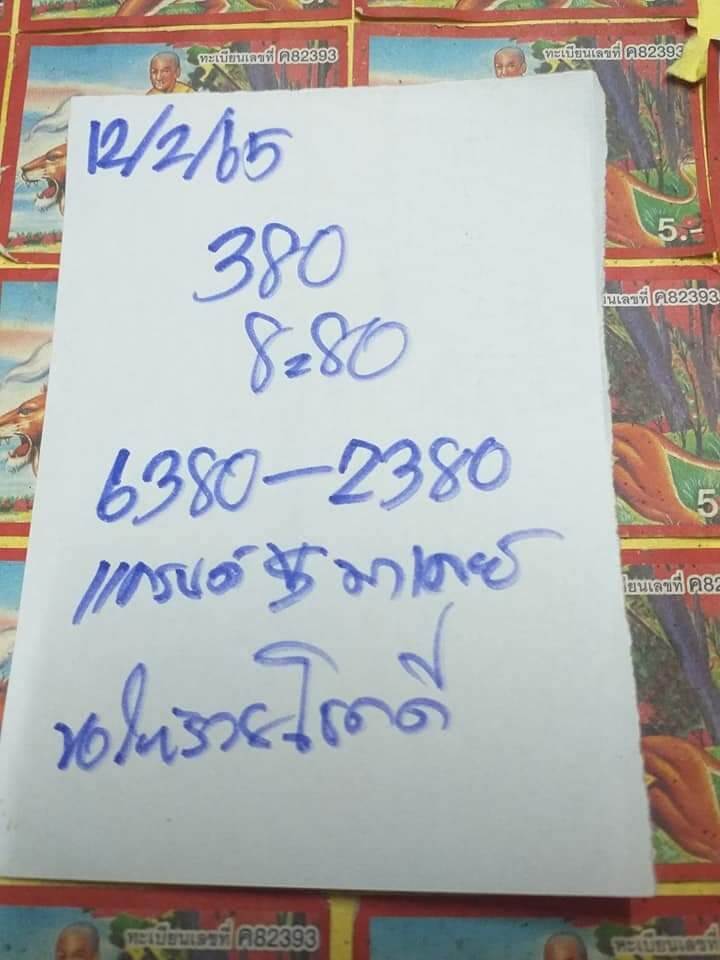 ทะเบียนเลขที่ ค82393
ทะเบียนเลขที่ ค82393
12/2/65
380
5.-
8=80
ทะเบียนเลขที่ ค82393
6380-2380
5
ทะเบียนเลขที่ ค82
ขอให้รวยโชคดี
ทะเบียนเลขที่ ค82393
ทะเบียนเลขที่ ค82393